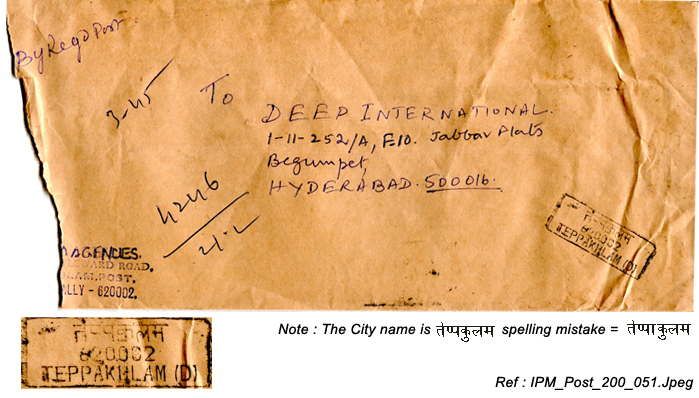 By Regd Post
3-45
To
DEEP INTERNATIONAL.
1-11-252/A, F.10. Jabbar Flats
Begumpet,
HYDERABAD. 500016.
4246
21.2
AGENCIES.
WARD ROAD,
LAM.POST,
LLY - 620002.
620002
TEPPAKULAM (D)
620002
TEPPAKULAM (D)
Note : The City name is तेप्पकुलम spelling mistake = तेप्पाकुलम
Ref : IPM_Post_200_051.Jpeg